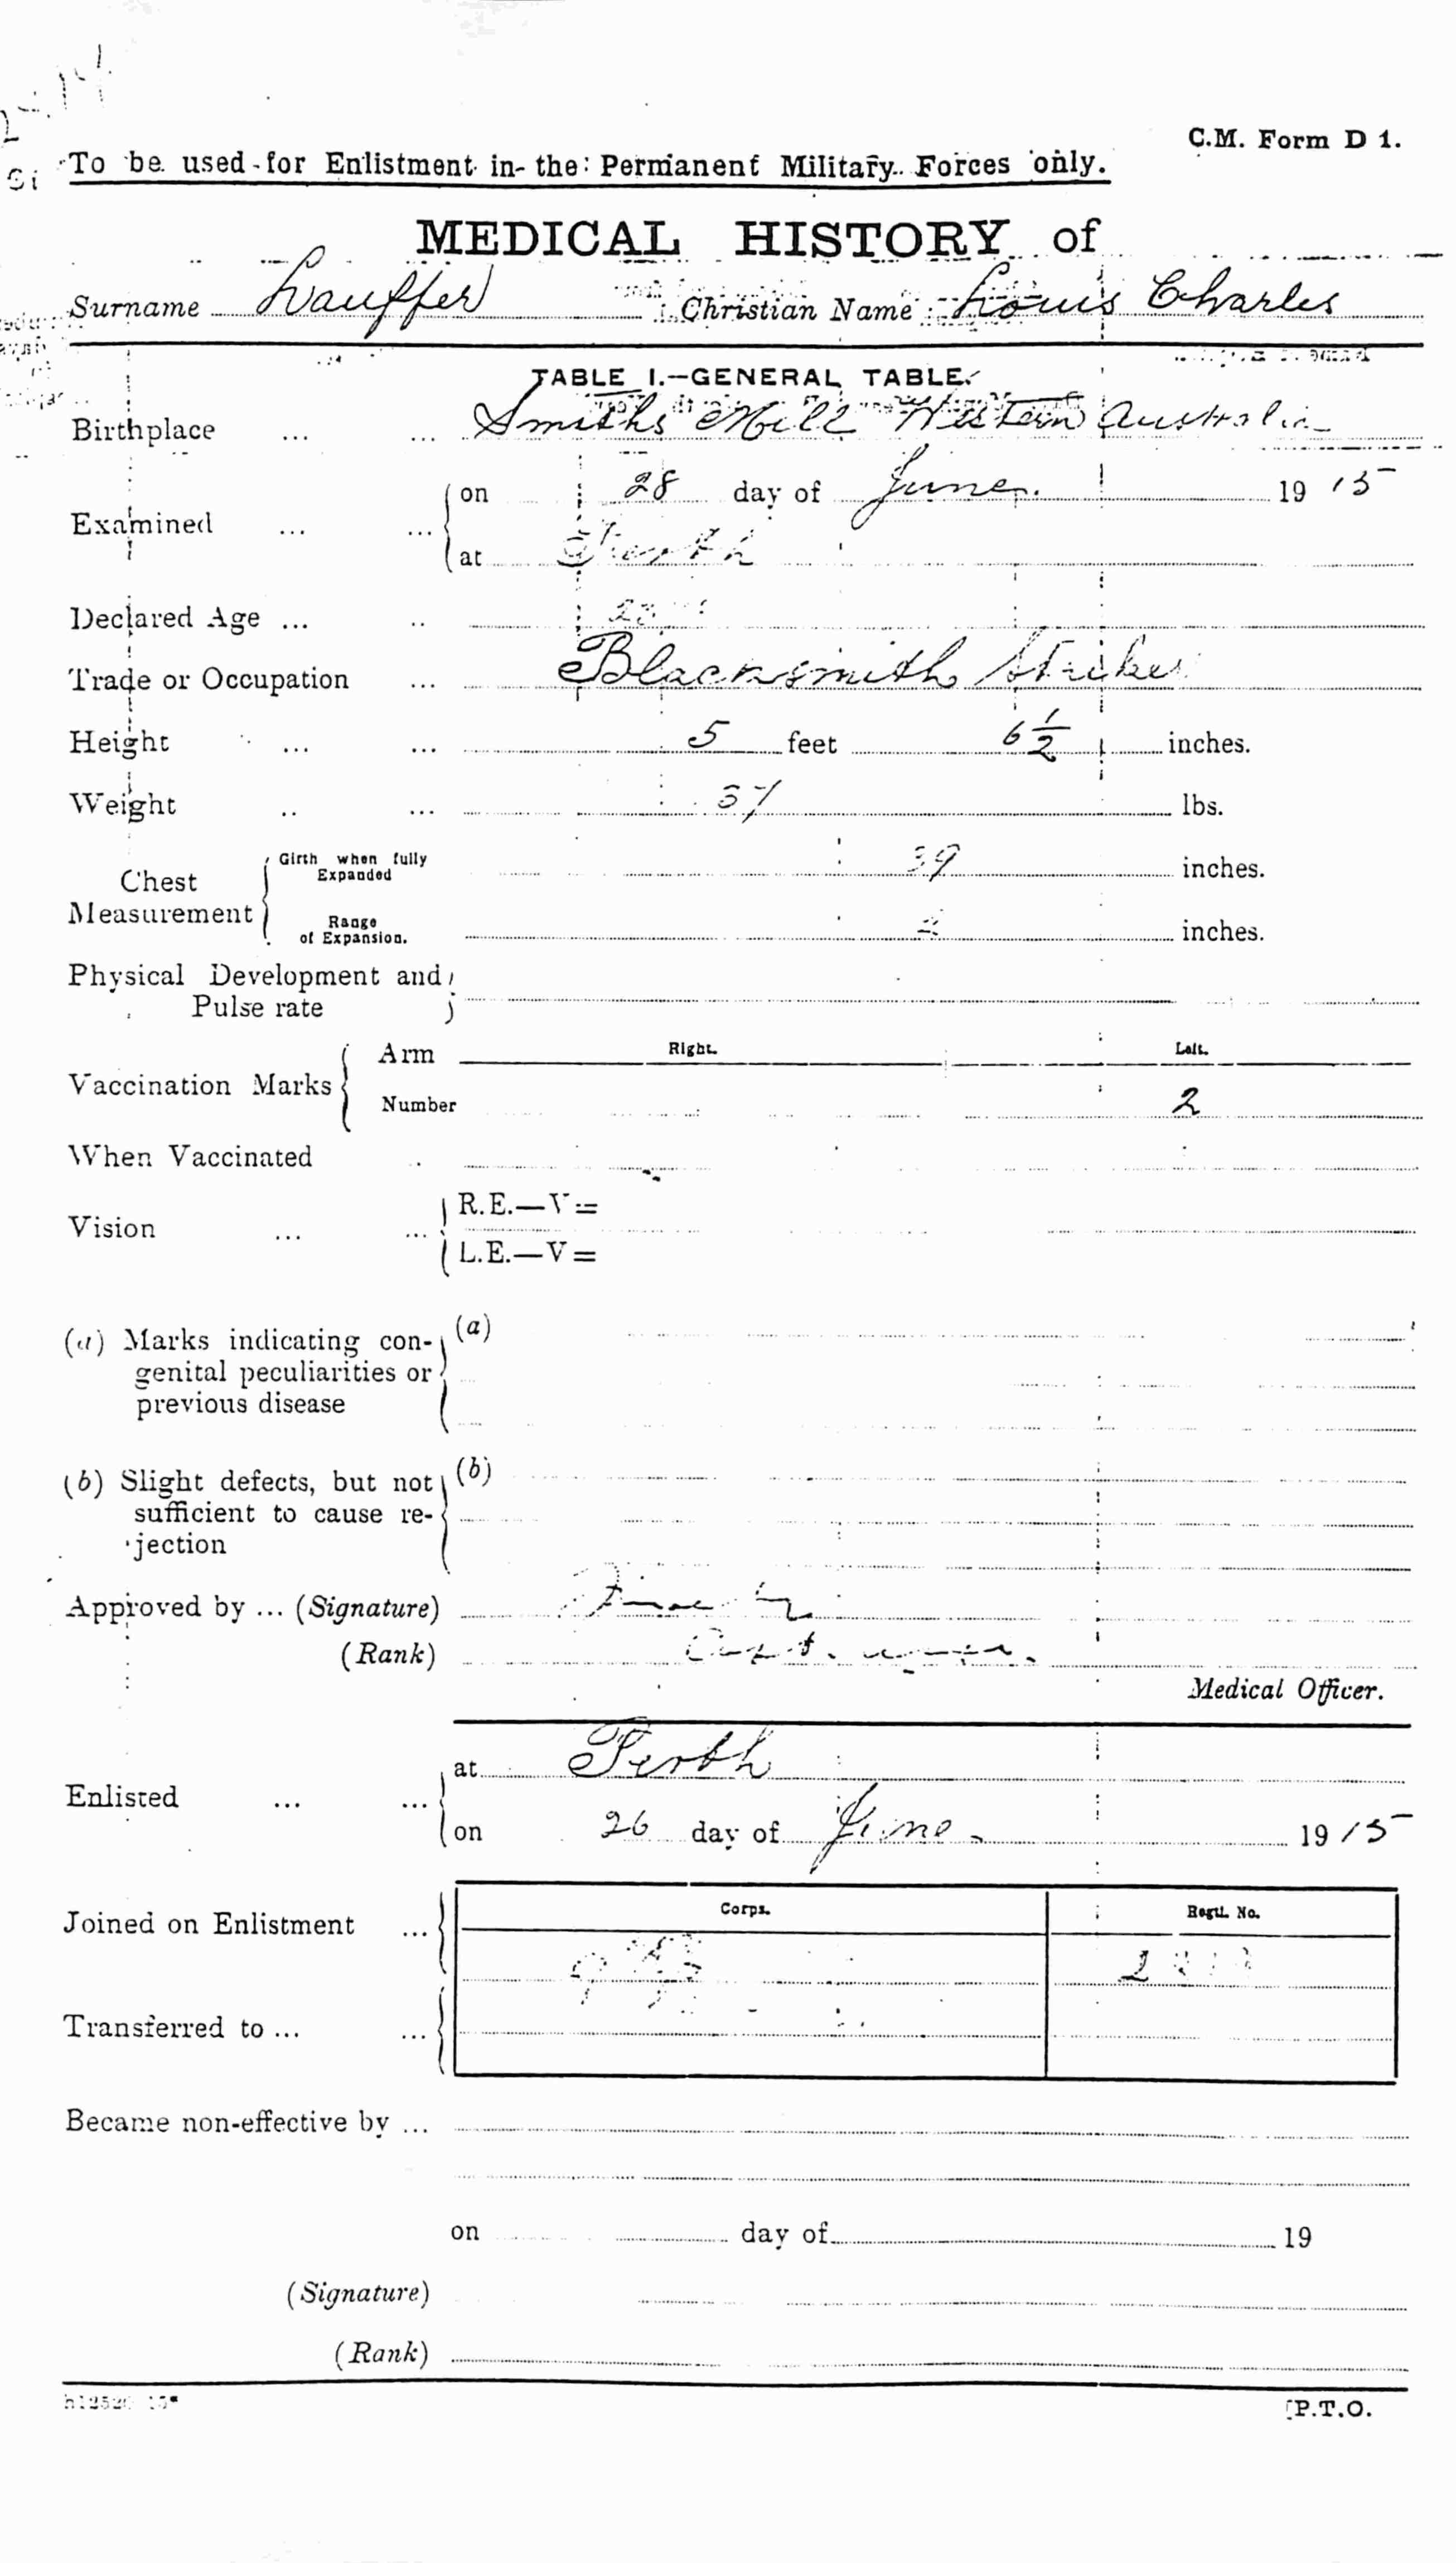 C.M. Form D 1.
To be used for Enlistment in the Permanent Military Forces only.
MEDICAL HISTORY of
Surname Lauffer Christian Name Louis Charles
TABLE I.—GENERAL TABLE.
Birthplace ... ... Smiths Mill Western Australia
Examined ... ... on 28 day of June 1915
at Perth
Declared Age ... ..
Trade or Occupation ... Blacksmith Striker
Height ... ... 5 feet 6 1/2 inches.
Weight .. ... lbs.
Chest Measurement Girth when fully Expanded 39 inches.
Range of Expansion. inches.
Physical Development and
Pulse rate
Vaccination Marks Arm Right. Left.
Number 2
When Vaccinated .
Vision ... ... R.E.—V=
L.E.—V=
(a) Marks indicating con- (a)
genital peculiarities or
previous disease
(b) Slight defects, but not (b)
sufficient to cause re-
jection
Approved by ... (Signature)
(Rank) Capt.
Medical Officer.
Enlisted ... ... at Perth
on 26 day of June 1915
Corps. Regtl. No.
Joined on Enlistment ...
Transferred to ... ...
Became non-effective by ...
on day of 19
(Signature)
(Rank)
[P.T.O.